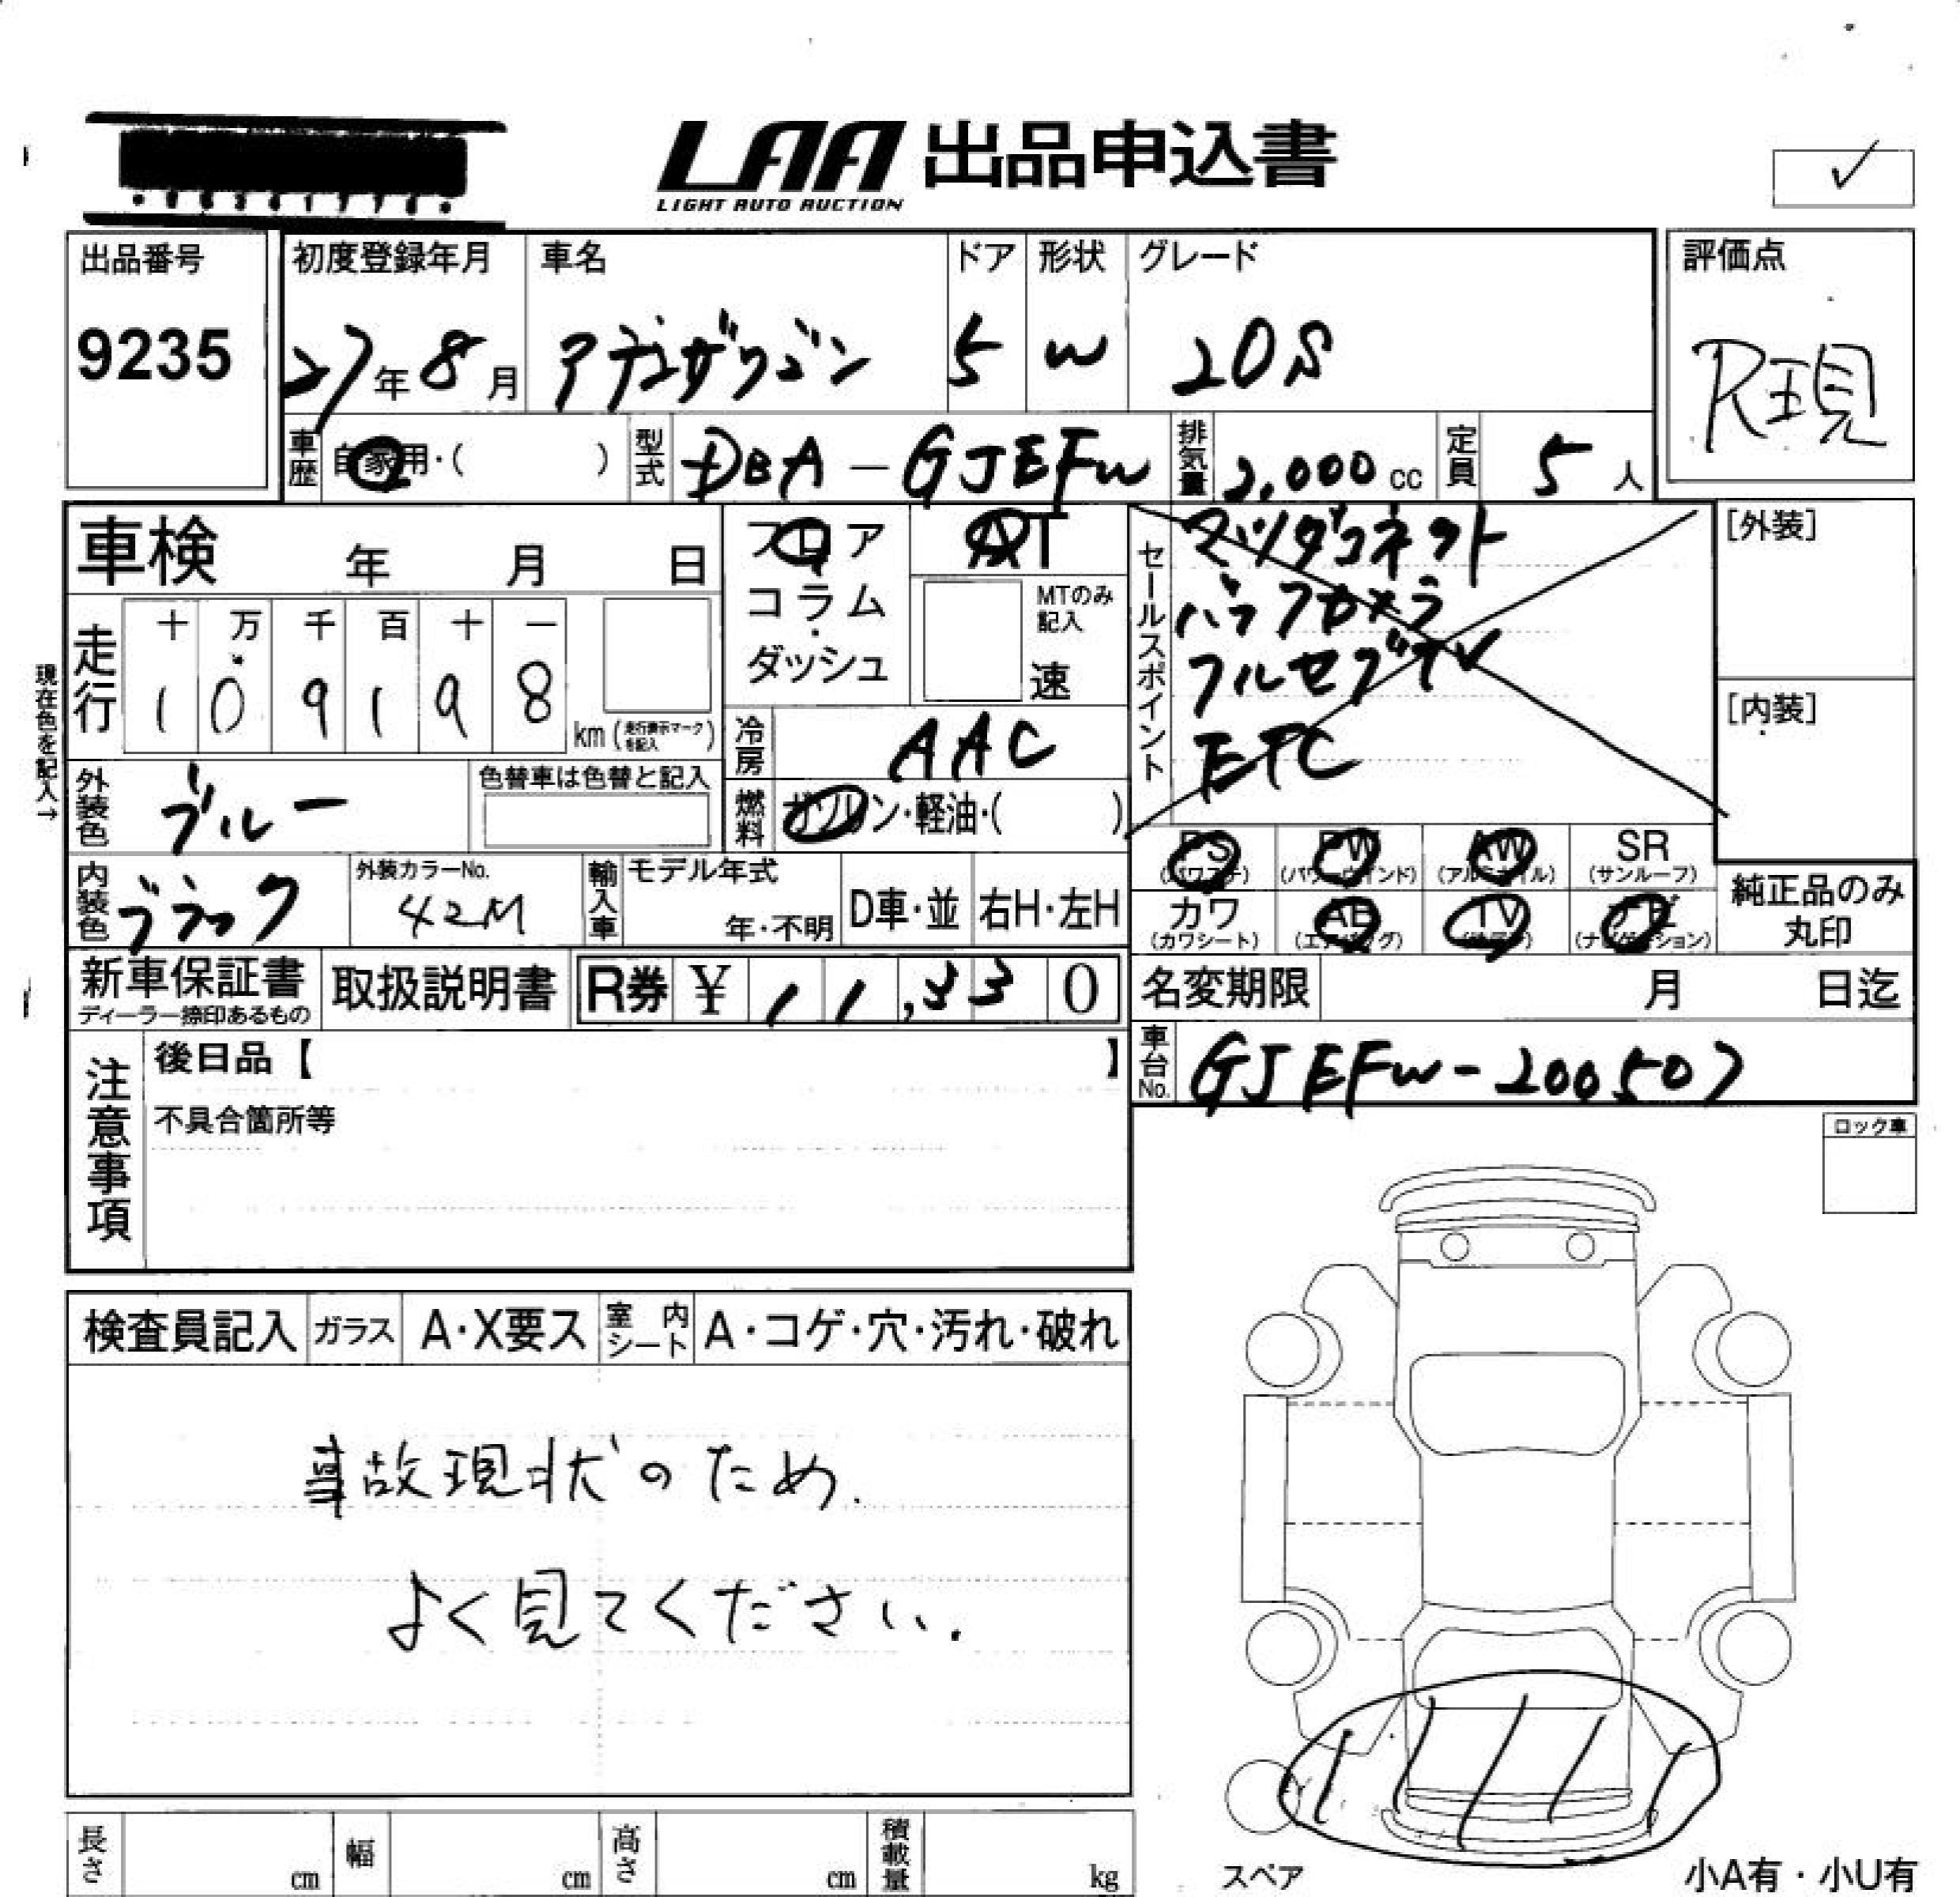 LAA 出品申込書
LIGHT AUTO AUCTION
出品番号
9235
初度登録年月
27年8月
車名
アテンザワゴン
ドア
5
形状
W
グレード
20S
評価点
R現
車歴 自家用・( )
型式 DBA-GJEFW
排気量 2,000 cc
定員 5 人
車検 年 月 日
フロア
コラム
・
ダッシュ
AT
MTのみ
記入
速
セールスポイント
マツダコネクト
バックカメラ
フルセグTV
ETC
[外装]
[内装]
現在色を記入→
走行
十 万 千 百 十 一
1 0 9 1 9 8
km (走行表示マークを記入)
冷房 AAC
外装色 ブルー
色替車は色替と記入
燃料 ガソリン・軽油・( )
内装色 ブラック
外装カラーNo.
42M
輸入車
モデル年式
年・不明
D車・並
右H・左H
PS
(パワステ)
PW
(パワーウインド)
AW
(アルミホイル)
SR
(サンルーフ)
カワ
(カワシート)
AB
(エアバッグ)
TV
ナビ
(ナビゲーション)
純正品のみ
丸印
新車保証書
ディーラー捺印あるもの
取扱説明書
R券 ¥ 11,330
名変期限 月 日迄
車台No. GJEFW-200507
注意事項
後日品【 】
不具合箇所等
ロック車
検査員記入
ガラス
A・X要ス
室内シート
A・コゲ・穴・汚れ・破れ
事故現状のため.
よく見てください.
長さ cm
幅 cm
高さ cm
積載量 kg
スペア
小A有・小U有